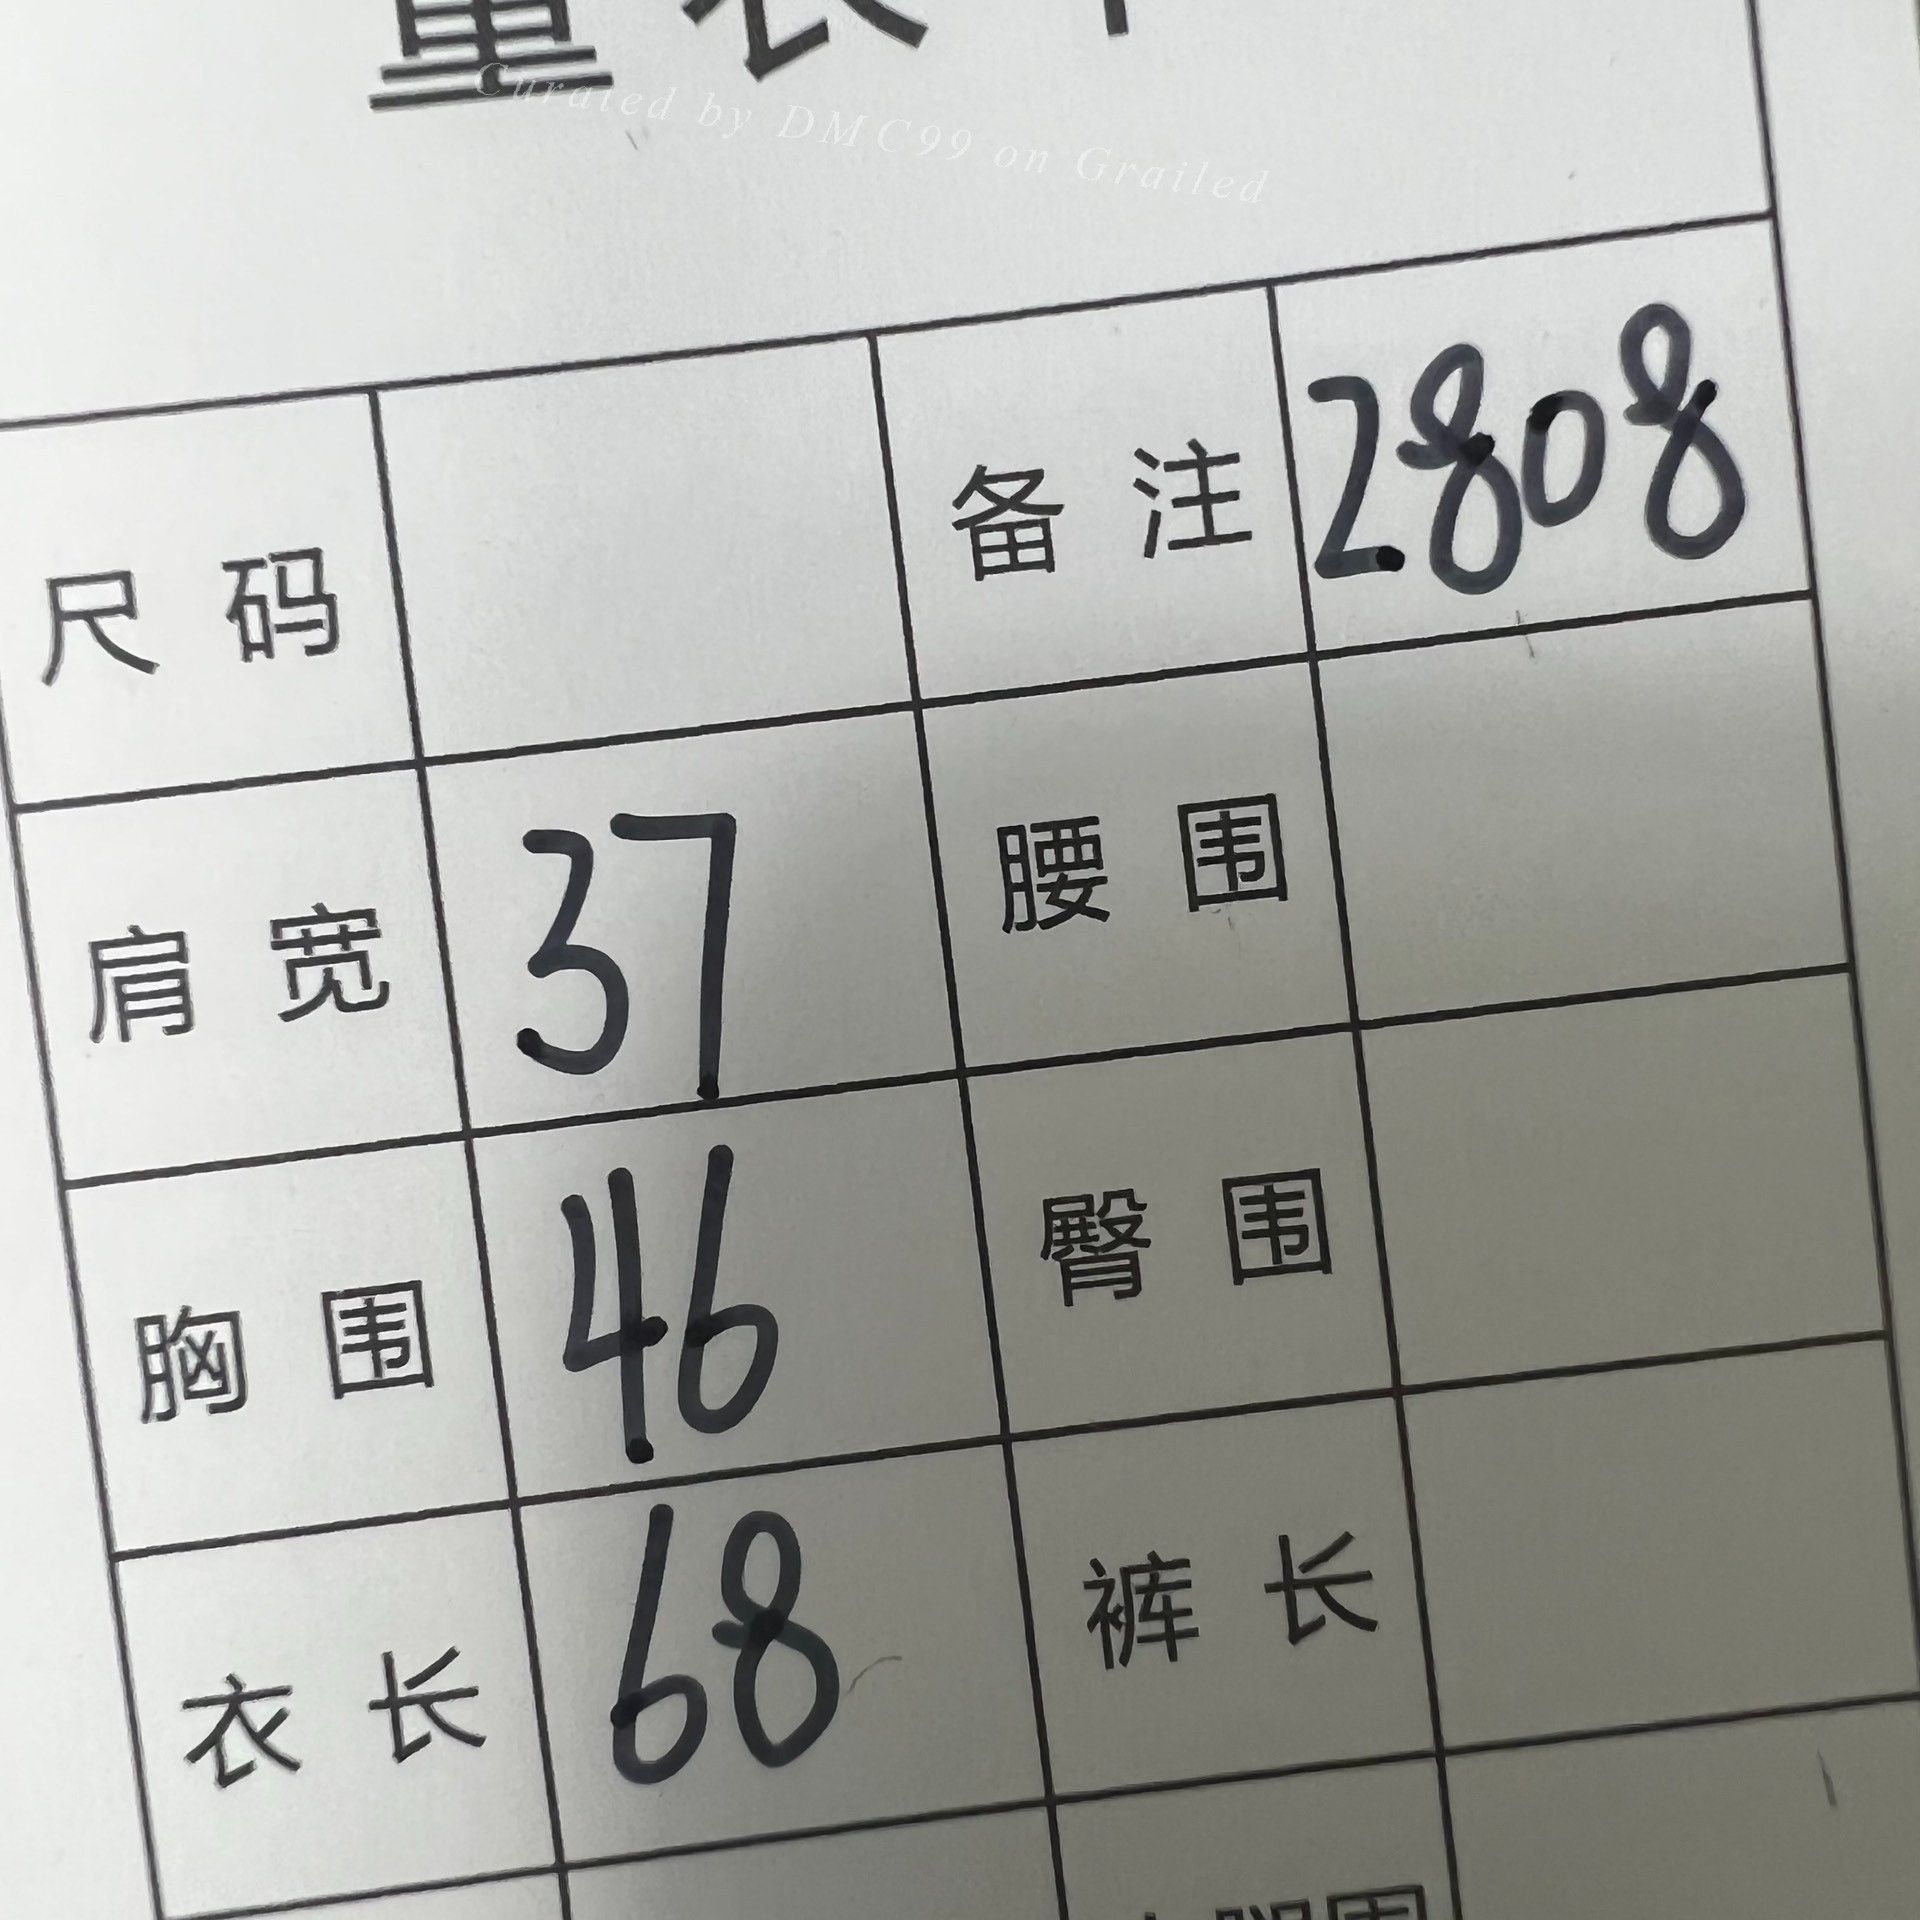 Curated by DMC99 on Grailed
尺码 备注 2808
肩宽 37 腰围
胸围 46 臀围
衣长 68 裤长